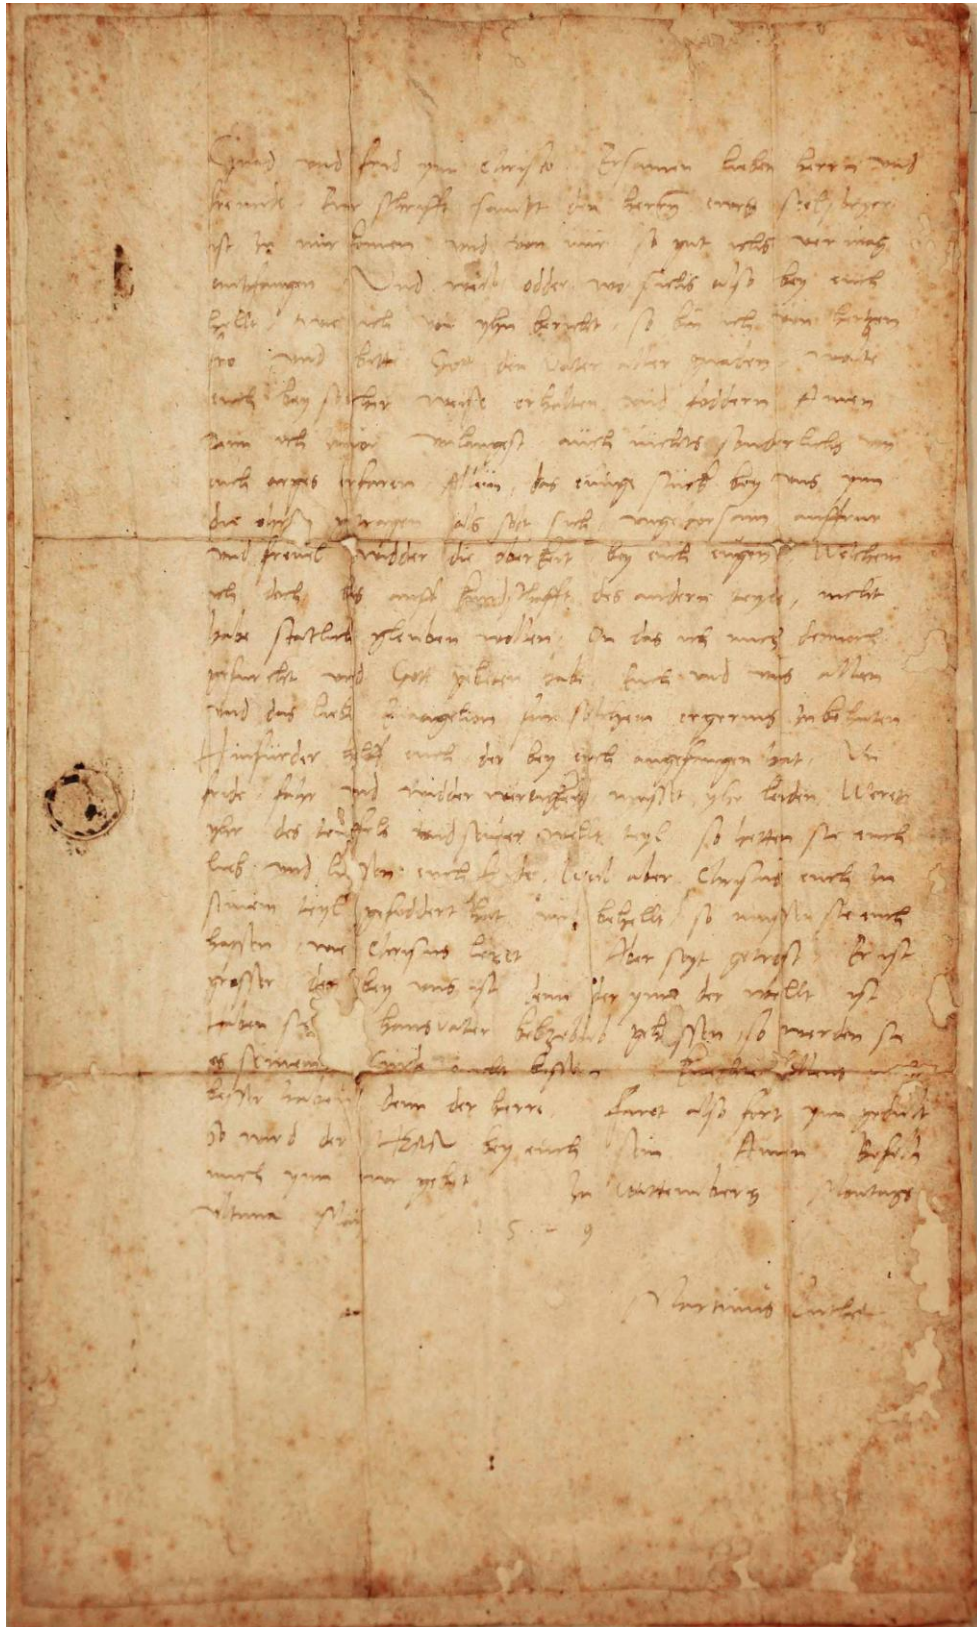 Gnad vnd frid ynn Christo Ersamen lieben herrn vnd
freunde Eur schrifft sampt den herrn ewrs
ist zu mir komen vnd von mir so gut ichs vermag
entpfangen Vnd weil odder wo sichs also bey euch
hellt, wie ich von yhn bericht, so bin ich von hertzen
fro vnd bitte Gott den vater aller gnaden, wolte
euch bey solcher weyse erhalten vnd foddern Amen
Denn ich zuuor vnlangest auch nichts sonderlichs von
euch arges erfaren Allein, das einige stuck bey vns ynn
die ohren als solt sich vngehorsam auffrur
vnd freuel widder die oberkeit bey euch eugen Welchem
ich doch bis auff kundschafft des andern teyls, nicht
habe stattlich gleuben wollen, On das ich mich dennoch
gefurcht vnd Gott gebeten habe, Euch vnd vns allen
vnd das liebe Euangelion fur solchem ergernis zu behuten
Hinfurder helff euch der bey euch angefangen hat, Vn
fride, fahr vnd widder mussit yhr leiden Weret
yhr des teuffels vnd seiner wellt teyl so hetten sie euch
lieb vnd liessen euch fride, Weil aber Christus euch zu
seinem teyl gefoddert hat vnd behellt so mussen sie euch
hassen wie Christus leret Aber seyt getrost Er ist
grosser der bey vns ist denn der ynn der wellt ist
haben sie hausvater beelzebub geheissen so werden sie
es seinem nicht bessern
besser haben denn der herre Faret also fort ynn gedult
So wird der HERR bey euch sein Amen Befelh
mich ynn ewr gebet Zu Wittemberg Montags
vltima Mai 1529
Martinus Luther